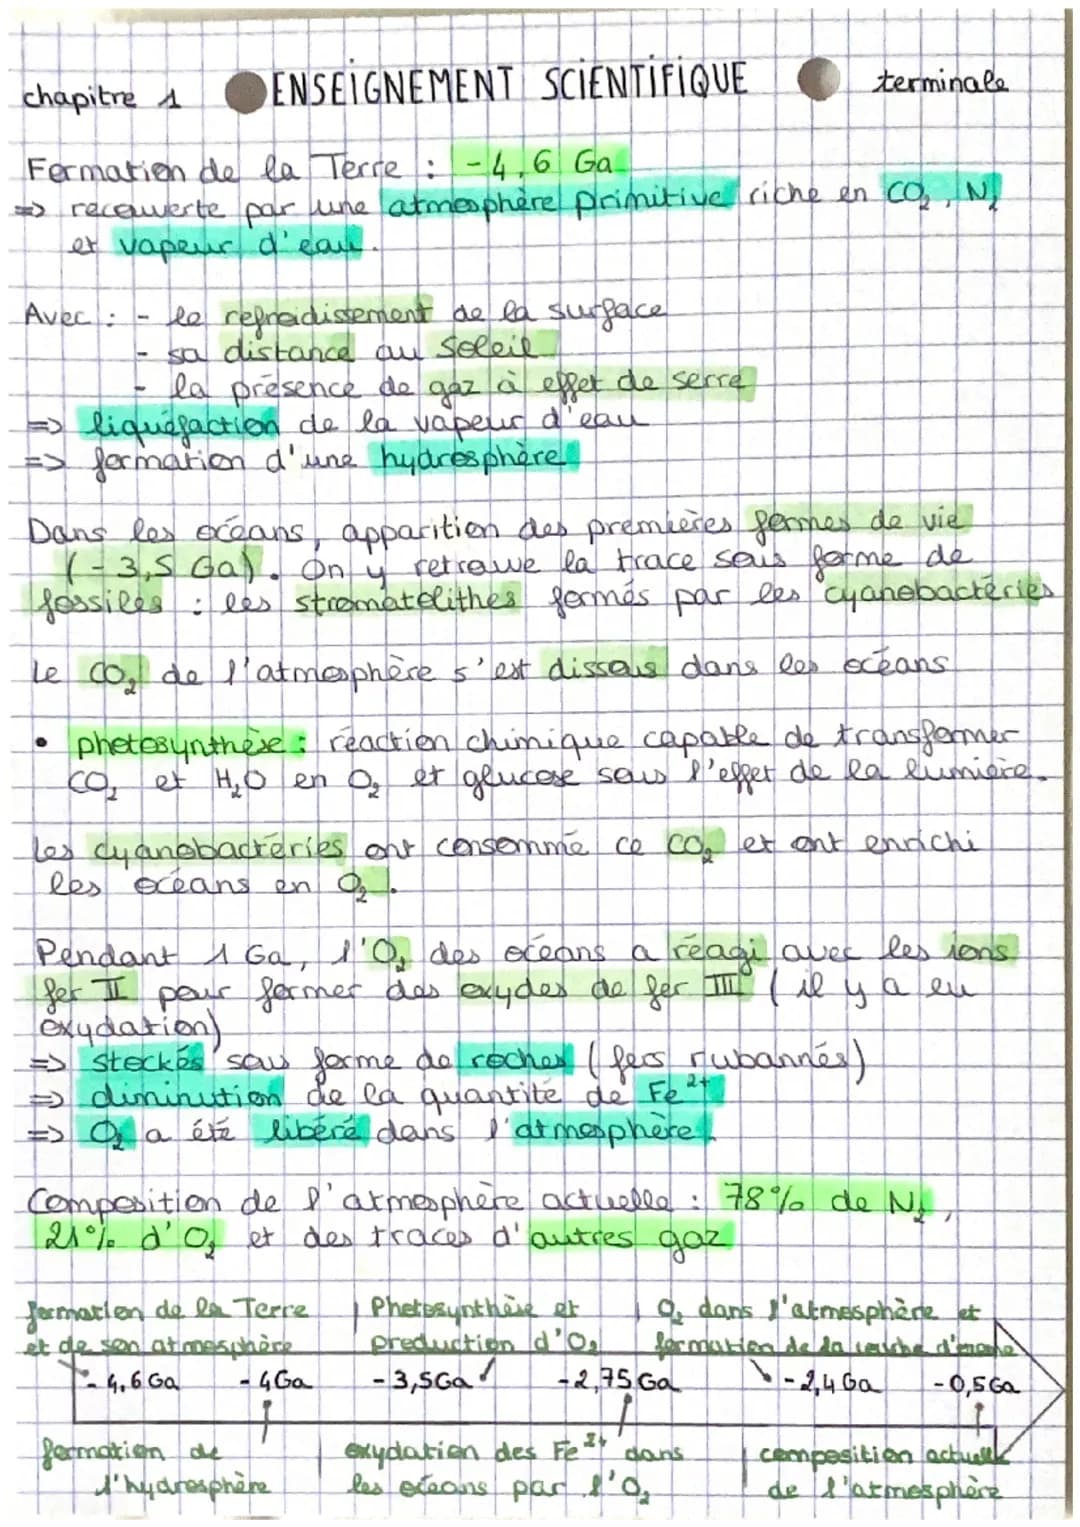 chapitre 1 ENSEIGNEMENT SCIENTIFIQUE terminale
Formation de la Terre : -4,6 Ga
=> recouverte par une atmosphère primitive riche en CO₂, N₂
et vapeur d'eau.
Avec : - le refroidissement de la surface
- sa distance au Soleil
- la présence de gaz à effet de serre
=> liquéfaction de la vapeur d'eau
=> formation d'une hydrosphère
Dans les océans, apparition des premières formes de vie
(-3,5 Ga). On y retrouve la trace sous forme de
fossiles : les stromatolithes formés par les cyanobactéries
Le CO₂ de l'atmosphère s'est dissous dans les océans
• photosynthèse : réaction chimique capable de transformer
CO₂ et H₂O en O₂ et glucose sous l'effet de la lumière.
Les cyanobactéries ont consommé ce CO₂ et ont enrichi
les océans en O₂.
Pendant 1 Ga, l'O₂ des océans a réagi avec les ions
fer II pour former des oxydes de fer III (il y a eu
oxydation)
=> stockés sous forme de roches (fers rubannés)
=> diminution de la quantité de Fe²⁺
=> O₂ a été libéré dans l'atmosphère.
Composition de l'atmosphère actuelle : 78% de N₂,
21% d'O₂ et des traces d'autres gaz
formation de la Terre | Photosynthèse et | O₂ dans l'atmosphère et
et de son atmosphère production d'O₂ formation de la couche d'ozone
-4,6 Ga -4Ga -3,5Ga -2,75 Ga -2,4 Ga -0,5Ga
formation de | oxydation des Fe²⁺ dans | composition actuelle
l'hydrosphère les océans par l'O₂ de l'atmosphère